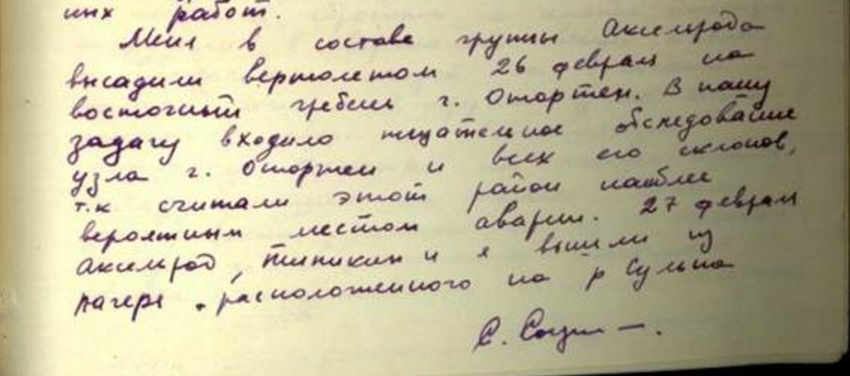 ных работ.
Меня в составе группы Аксельрода
высадили вертолетом 26 февраля на
восточный гребень г. Отортен. В нашу
задачу входило тщательное обследование
узла г. Отортен и всех его склонов,
т.к считали этот район наиблее
вероятным местом аварии. 27 февраля
Аксельрод, Типикин и я вышли из
лагеря, расположенного на р Сульпа
С. Согрин